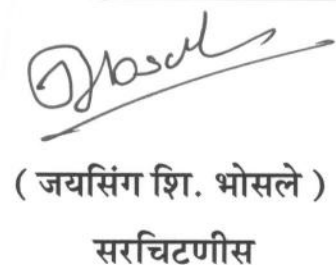 ( जयसिंग शि. भोसले )
सरचिटणीस